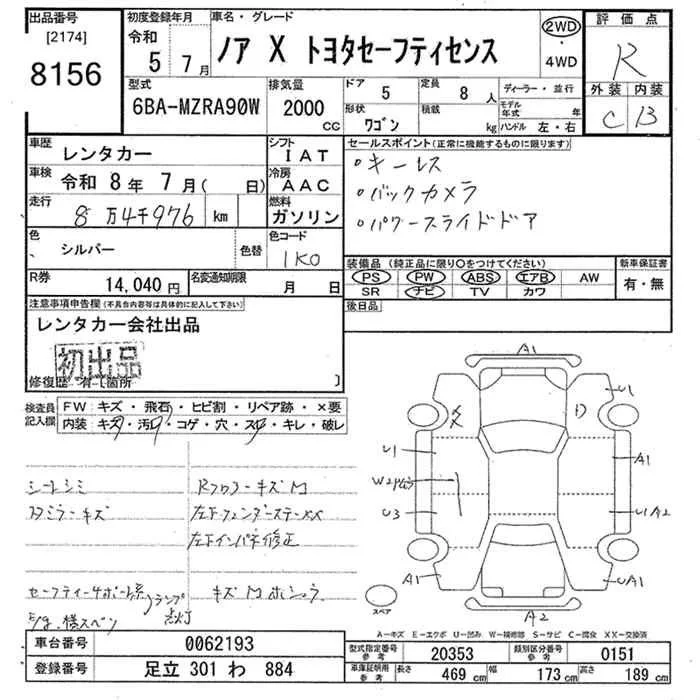 出品番号
[2174]
8156
初度登録年月
令和
5 7月
車名・グレード
ノア X トヨタセーフティセンス
2WD
・
4WD
評価点
R
外装 内装
C B
型式
6BA-MZRA90W
排気量
2000
CC
ドア
5
定員
8人
形状
ワゴン
積載
kg
ディーラー・並行
モデル年式 年
ハンドル 左・右
車歴
レンタカー
シフト
IAT
車検
令和 8年 7月( 日)
冷房
AAC
走行
8万4千976 km
燃料
ガソリン
色
シルバー
色替
色コード
1K0
R券
14,040円
名変通知期限
月 日
セールスポイント(正常に機能するものに限ります)
・キーレス
・バックカメラ
・パワースライドドア
装備品(純正品に限り〇をつけてください)
PS PW ABS エアB AW
SR ナビ TV カワ
新車保証書
有・無
後日品
注意事項申告欄(不具合内容等は具体的に記入して下さい)
レンタカー会社出品
初出品
修復歴 有・[箇所 ]
検査員
記入欄
FW キズ・飛石・ヒビ割・リペア跡・×要
内装 キズ・汚レ・コゲ・穴・スレ・キレ・破レ
シートシミ
RフロアーキズM
左下フェンダーステーXX
左下インパネ修正
ランプ
点灯
A1
U1
U1
A1
U3
U1A2
A1
UA1
A2
スペア
A-キズ E-エクボ U-凹み W-補修跡 S-サビ C-腐食 XX-交換済
車台番号
0062193
登録番号
足立 301 わ 884
型式指定番号
参考
20353
類別区分番号
参考
0151
車庫証明用
参考
長さ
469 cm
幅
173 cm
高さ
189 cm